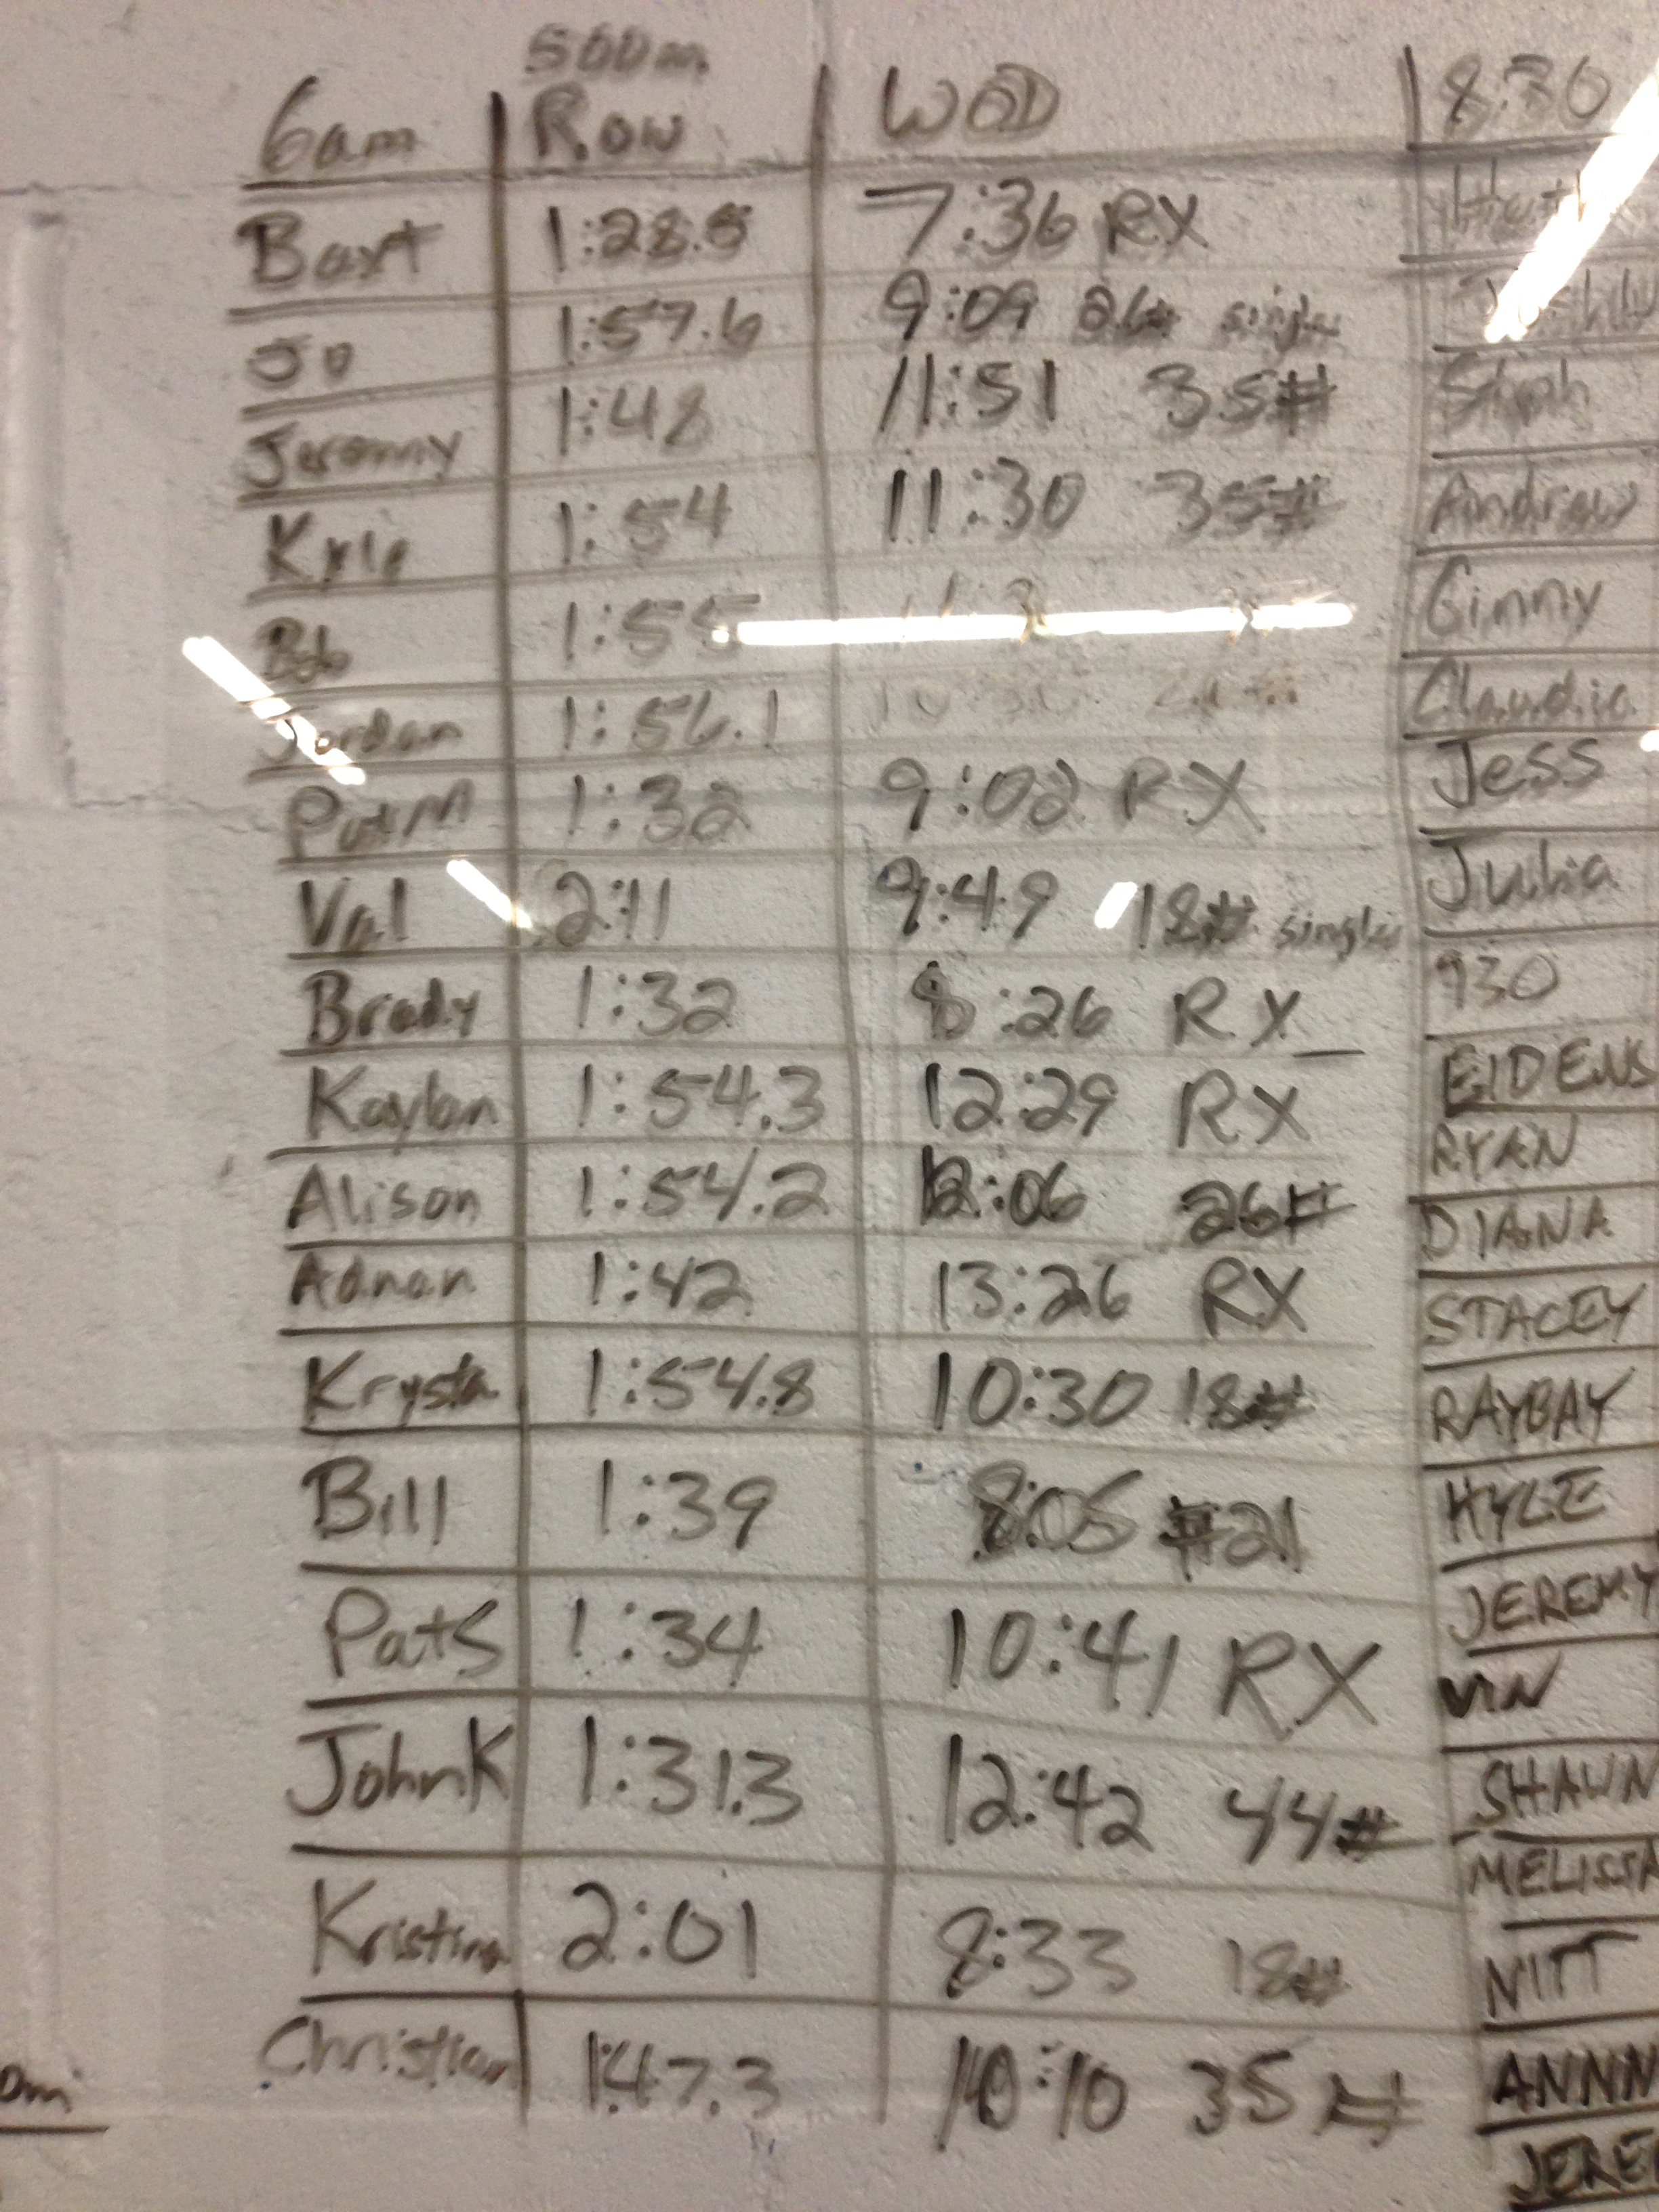 500m
6am Row WOD
Baxt 1:28.5 7:36 RX
Jo 1:57.6 9:09 26# singles
Jeremy 1:48 11:51 35#
Kyle 1:54 11:30 35#
Bob 1:55
Jordan 1:56.1 10:30
Pat M 1:32 9:02 RX
Val 2:11 9:49 18# singles
Brady 1:32 8:26 RX
Kaylan 1:54.3 12:29 RX
Alison 1:54.2 12:06 26#
Adnan 1:42 13:26 RX
Krysta 1:54.8 10:30 18#
Bill 1:39 8:05 #21
Pat S 1:34 10:41 RX
John K 1:31.3 12:42 44#
Kristina 2:01 8:33 18#
Christian 1:47.3 10:10 35#
8:30
Steph
Andrew
Ginny
Claudia
Jess
Julia
930
EIDENS
RYAN
DIANA
STACEY
RAYBAY
KYLE
JEREMY
VIN
SHAWN
MELISSA
NITT
ANNN
JERE